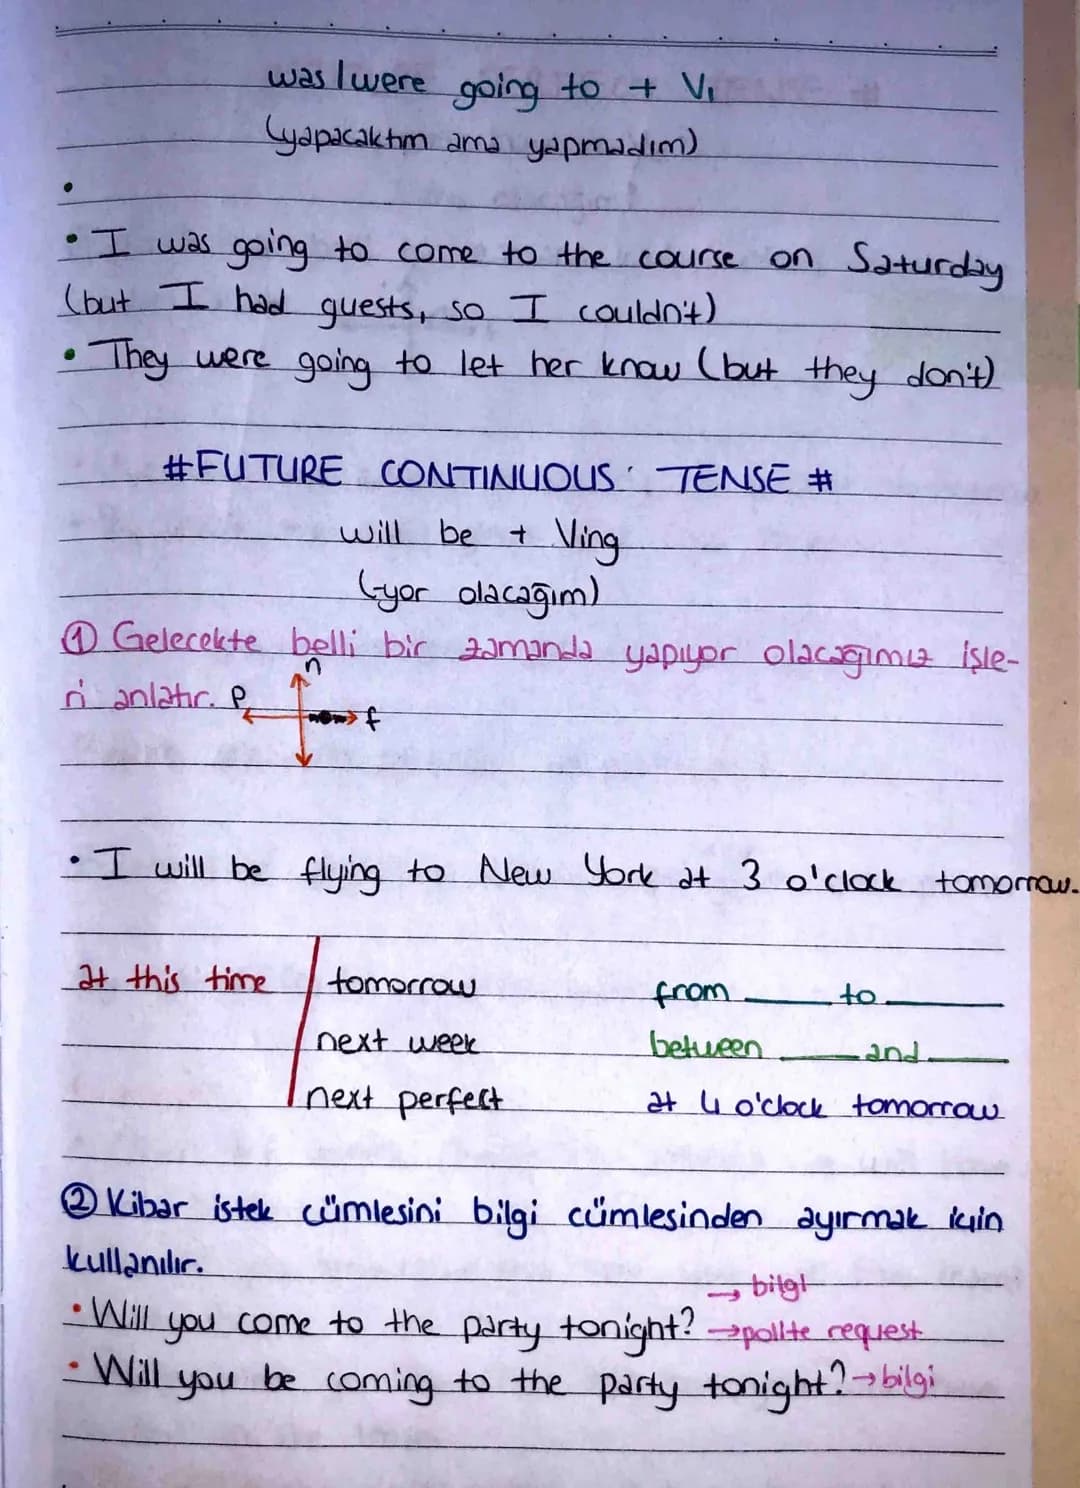 was/were going to + V₁
(yapacaktım ama yapmadım)
•
• I was going to come to the course on Saturday
(but I had guests, so I couldn't)
• They were going to let her know (but they don't)
#FUTURE CONTINUOUS TENSE #
will be + Ving
(-yor olacağım)
① Gelecekte belli bir zamanda yapıyor olacağımız işle-
ri anlatır. p n f
• I will be flying to New York at 3 o'clock tomorrow.
at this time / tomorrow from ___ to ___
next week between ___ and ___
next perfect at 4 o'clock tomorrow
② Kibar istek cümlesini bilgi cümlesinden ayırmak için
kullanılır.
→ bilgi
• Will you come to the party tonight? → polite request
• Will you be coming to the party tonight? → bilgi